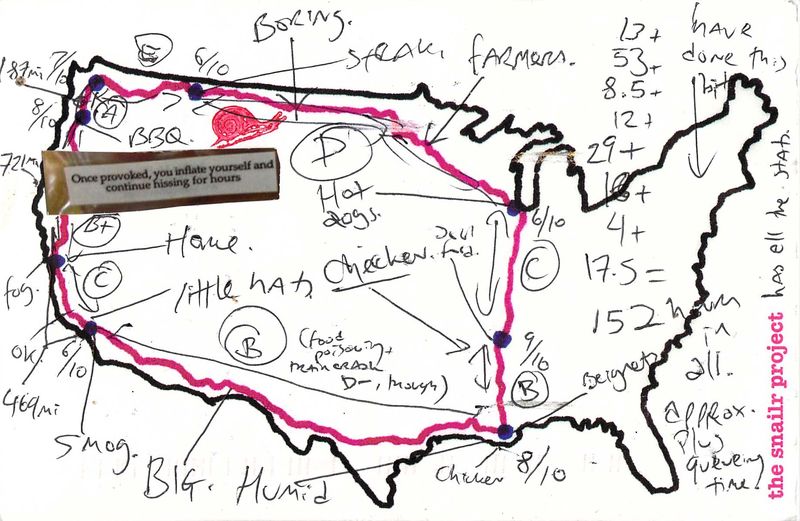 BORING.
E
STEAK.
FARMERS.
6/10
187mi
7/10
8/10
A
BBQ.
D
Once provoked, you inflate yourself and
continue hissing for hours
Hot
dogs.
B+
Home.
C
fog.
little hats
Chicken.
6/10
C
OK
6/10
469mi
Smog.
B
(food
poisoning +
D-, though)
9/10
B
Beignets
BIG.
Humid
Chicken
8/10
13+
53+
8.5+
12+
29+
4+
17.5=
152 hours
in
all.
approx.
plus
queueing
time.
have
done this
bit
the snailr project
has all the stats.